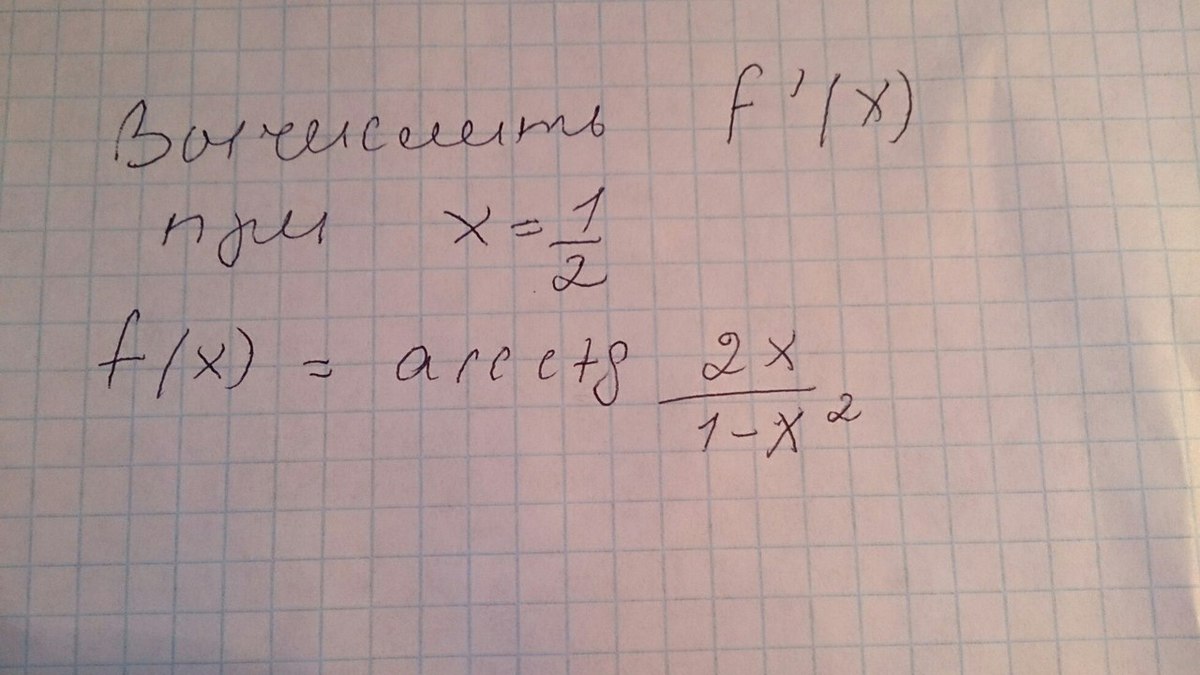 Вычислить f'(x)
при x = 1/2
f(x) = arcctg 2x/(1-x²)